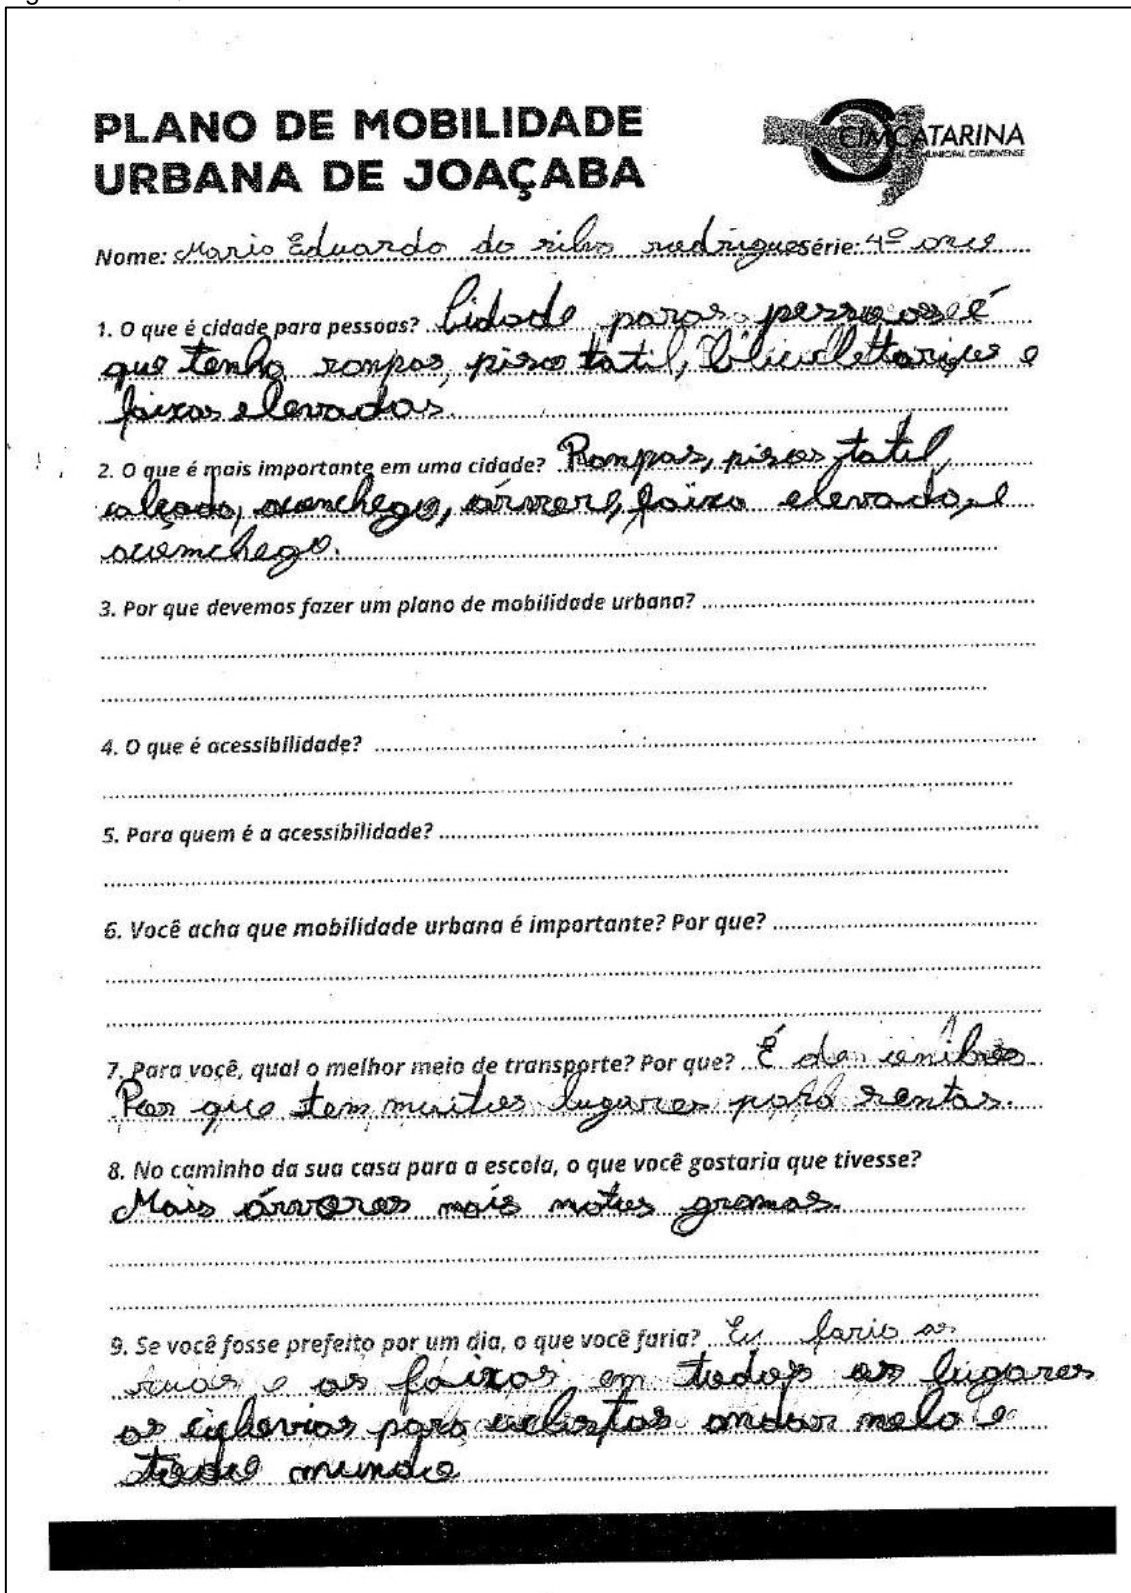 PLANO DE MOBILIDADE
URBANA DE JOAÇABA
CIMCATARINA
Nome: Mario Eduardo da silva rodrigues série: 4º ano
1. O que é cidade para pessoas? Cidade paras pessoas é
que tenha rompas, piso tatil, e
faixas elevadas.
2. O que é mais importante em uma cidade? Rompas, pisos tatil,
calçada, aconchego, árvore, faixa elevada, e
aconchego.
3. Por que devemos fazer um plano de mobilidade urbana?
4. O que é acessibilidade?
5. Para quem é a acessibilidade?
6. Você acha que mobilidade urbana é importante? Por que?
7. Para você, qual o melhor meio de transporte? Por que? É
Por que tem muitos lugares para sentar.
8. No caminho da sua casa para a escola, o que você gostaria que tivesse?
Mais árvores mais matos gramas.
9. Se você fosse prefeito por um dia, o que você faria? Eu faria as
ruas e as faixas em todos os lugares
as para andar nela e
todo mundo